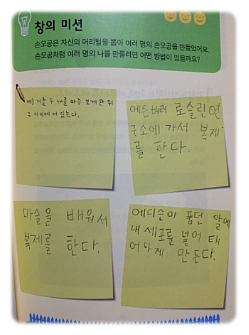 창의 미션
손오공은 자신의 머리털을 뽑아 여러 명의 손오공을 만들었어요.
손오공처럼 여러 명의 나를 만들려면 어떤 방법이 있을까요?
예) 거울 두 개를 마주 보게 한 뒤
그 사이에 서 있는다.
에든버러 로슬린연
구소에 가서 복제
를 한다.
마술을 배워서
복제를 한다.
에디슨이 품던 알에
내 세포를 넣어 태
어나게 만든다.